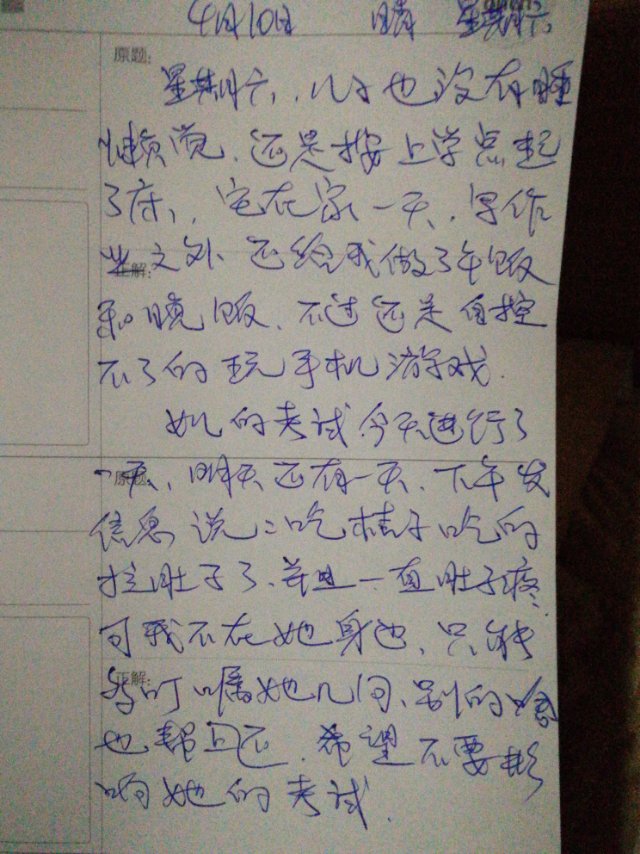 4月10日 晴 星期六
原题:
星期六,儿子也没有睡
懒觉,还是按上学点起
了床,宅在家一天,写作
业之外还给我做了午饭
正解:
和晚饭、不过还是自控
不了的玩手机游戏.
女儿的考试今天进行了
原题:
一天、明天还有一天、下午发
信息说:吃桔子吃的
拉肚子了、并且一直肚子疼,
可我不在她身边,只能
正解:
叮嘱她几句、别的啥
也帮上不.希望不要影
响她的考试.